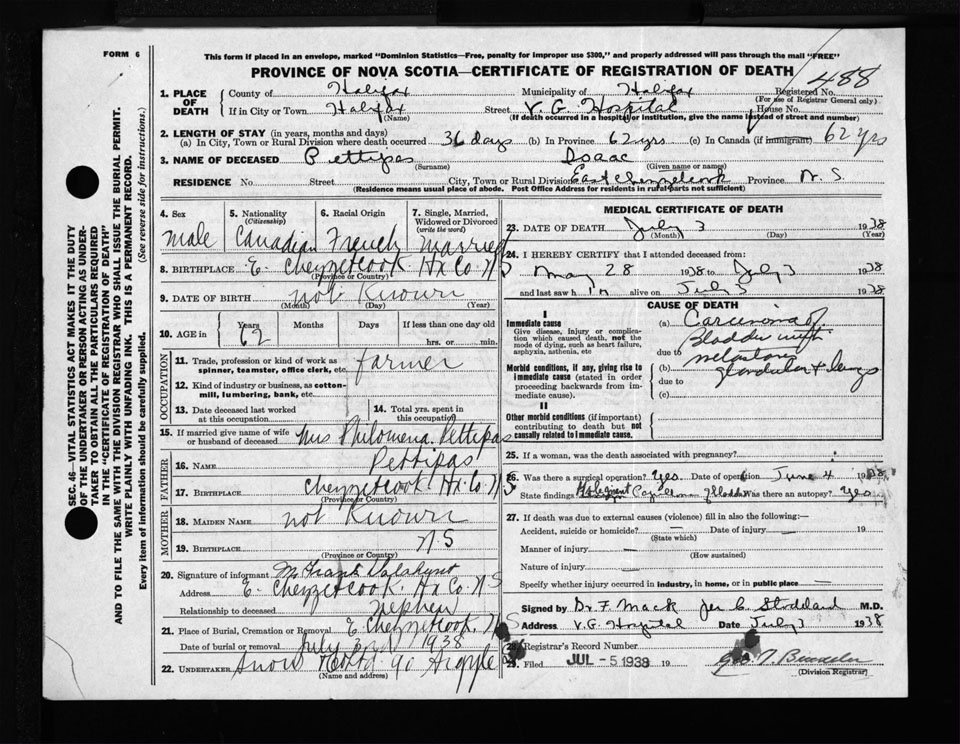 FORM 6
This form if placed in an envelope, marked "Dominion Statistics—Free, penalty for improper use $300," and properly addressed will pass through the mail "FREE"
PROVINCE OF NOVA SCOTIA—CERTIFICATE OF REGISTRATION OF DEATH
488
1. PLACE OF DEATH
County of Halifax Municipality of Halifax Registered No.
(For use of Registrar General only)
If in City or Town Halifax Street V. G. Hospital House No.
(Name) (If death occurred in a hospital or institution, give the name instead of street and number)
2. LENGTH OF STAY (in years, months and days)
(a) In City, Town or Rural Division where death occurred 36 days (b) In Province 62 yrs (c) In Canada (if immigrant) 62 yrs
3. NAME OF DECEASED Pettipas Isaac
(Surname) (Given name or names)
RESIDENCE No. Street City, Town or Rural Division East Chezzetcook Province N. S.
(Residence means usual place of abode. Post Office Address for residents in rural parts not sufficient)
SEC. 46—VITAL STATISTICS ACT MAKES IT THE DUTY
OF THE UNDERTAKER OR PERSON ACTING AS UNDER-
TAKER TO OBTAIN ALL THE PARTICULARS REQUIRED
IN THE "CERTIFICATE OF REGISTRATION OF DEATH"
AND TO FILE THE SAME WITH THE DIVISION REGISTRAR WHO SHALL ISSUE THE BURIAL PERMIT.
WRITE PLAINLY WITH UNFADING INK. THIS IS A PERMANENT RECORD.
Every item of information should be carefully supplied. (See reverse side for instructions.)
4. Sex
Male
5. Nationality
(Citizenship)
Canadian
6. Racial Origin
French
7. Single, Married, Widowed or Divorced
(write the word)
Married
8. BIRTHPLACE E. Chezzetcook Hx Co. N S
(Province or Country)
9. DATE OF BIRTH not Known
(Month) (Day) (Year)
10. AGE in Years Months Days If less than one day old
62 hrs. or min.
OCCUPATION
11. Trade, profession or kind of work as
spinner, teamster, office clerk, etc. farmer
12. Kind of industry or business, as cotton-
mill, lumbering, bank, etc.
13. Date deceased last worked
at this occupation
14. Total yrs. spent in
this occupation
15. If married give name of wife
or husband of deceased Mrs Philomena Pettipas
FATHER
16. NAME Pettipas
17. BIRTHPLACE Chezzetcook Hx Co. N S
(Province or Country)
MOTHER
18. MAIDEN NAME not Known
19. BIRTHPLACE N. S
(Province or Country)
20. Signature of informant Mr Frank
Address E. Chezzetcook Hx Co. N S
Relationship to deceased Nephew
21. Place of Burial, Cremation or Removal E Chezzetcook, N S
Date of burial or removal July 3rd 1938
22. UNDERTAKER Snow 90 Argyle
(Name and address)
MEDICAL CERTIFICATE OF DEATH
23. DATE OF DEATH July 3 1938
(Month) (Day) (Year)
24. I HEREBY CERTIFY that I attended deceased from:
May 28 1938 to July 3 1938
and last saw him alive on July 3 1938
CAUSE OF DEATH
I
Immediate cause
Give disease, injury or complica-
tion which caused death, not the
mode of dying, such as heart failure,
asphyxia, asthenia, etc
(a) Carcinoma of
Bladder with
due to
Morbid conditions, if any, giving rise to
immediate cause (stated in order
proceeding backwards from im-
mediate cause).
(b) glandular & lungs
due to
(c)
II
Other morbid conditions (if important)
contributing to death but not
causally related to immediate cause.
25. If a woman, was the death associated with pregnancy?
26. Was there a surgical operation? Yes Date of operation June 4 1938
State findings Bladder Was there an autopsy? Yes
27. If death was due to external causes (violence) fill in also the following:—
Accident, suicide or homicide? — Date of injury — 19
(State which)
Manner of injury —
(How sustained)
Nature of injury —
Specify whether injury occurred in industry, in home, or in public place —
Signed by Dr. F. Mack per C. Stoddard M.D.
Address V. G. Hospital Date July 3 1938
28. Registrar's Record Number
29. Filed JUL - 5 1938 19
(Division Registrar)